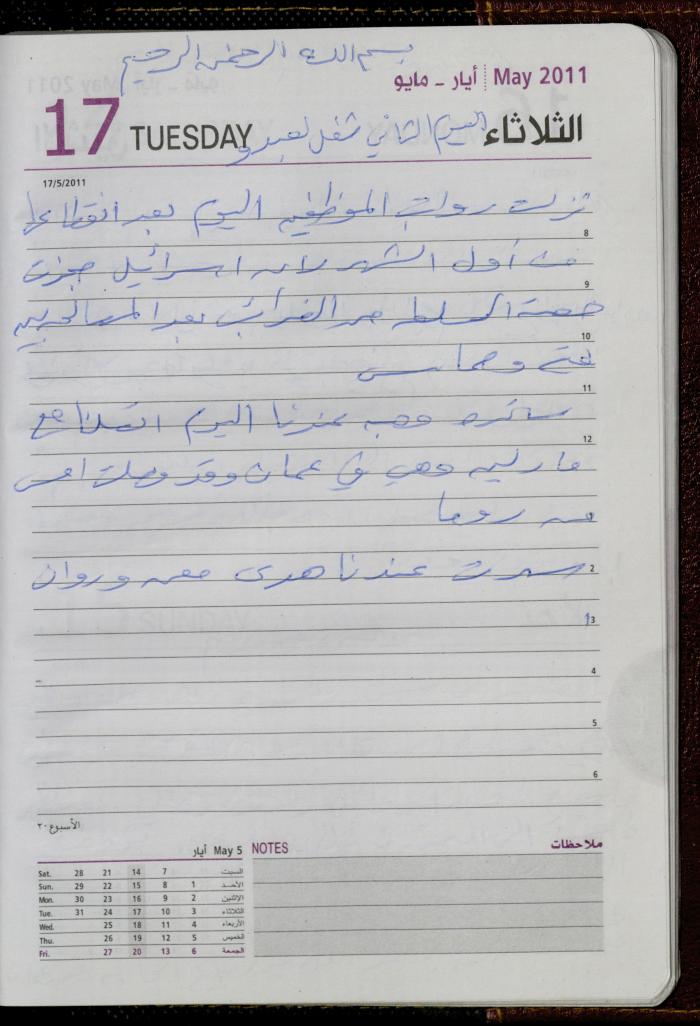 بسم الله الرحمن الرحيم
أيار - مايو May 2011
17 TUESDAY اليوم الثاني شغل لعبدو الثلاثاء
17/5/2011
نزلت رواتب الموظفين اليوم بعد انقطاعها
8
من أول الشهر لأن اسرائيل حجزت
9
حصة السلطة من الضرائب بعد المصالحة بين
10
فتح وحماس
11
اليوم اتصلنا مع
12
مارلين وهي في عمان وقد وصلت امس
من روما
سهرت عندنا هدى معن وروان 2
3
4
5
6
الأسبوع ٢٠
May 5 أيار
Sat. 28 21 14 7 السبت
Sun. 29 22 15 8 1 الأحد
Mon. 30 23 16 9 2 الإثنين
Tue. 31 24 17 10 3 الثلاثاء
Wed. 25 18 11 4 الأربعاء
Thu. 26 19 12 5 الخميس
Fri. 27 20 13 6 الجمعة
NOTES ملاحظات